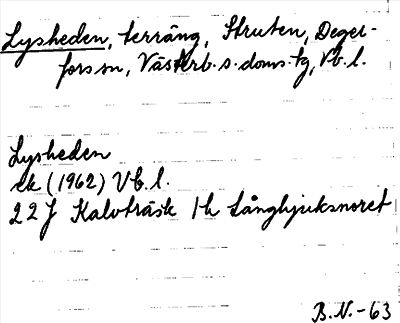 Lysheden, terräng, Struten, Deger-
fors sn, Västerb. s. doms. tg, Vb. l.
Lysheden
ek (1962) Vb. l.
22 J Kalvträsk 1h Långbjuksnoret
B.N.-63